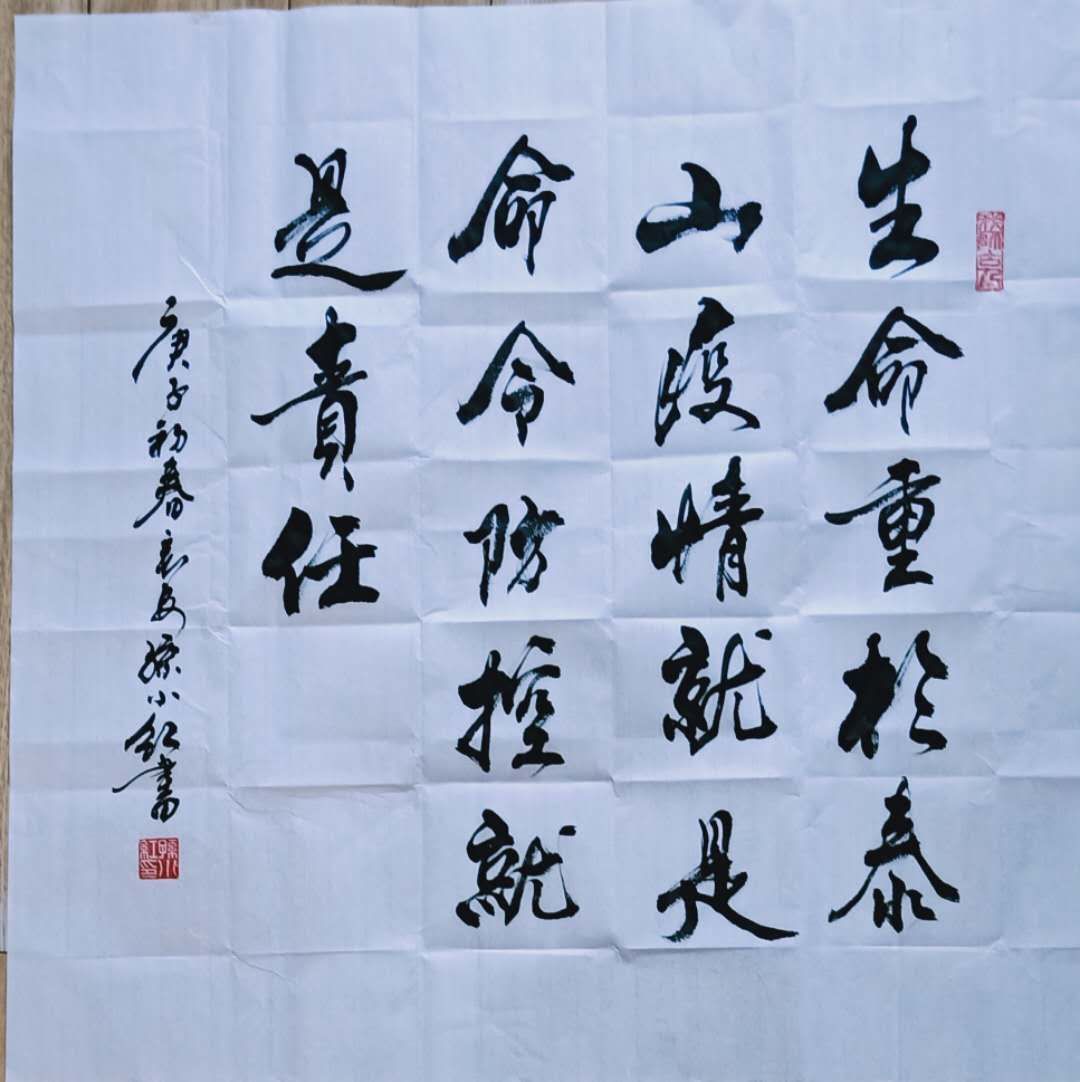 生命重於泰
山疫情就是
命令防控就
是責任
庚子初春長安孫小紅書
孫小紅印